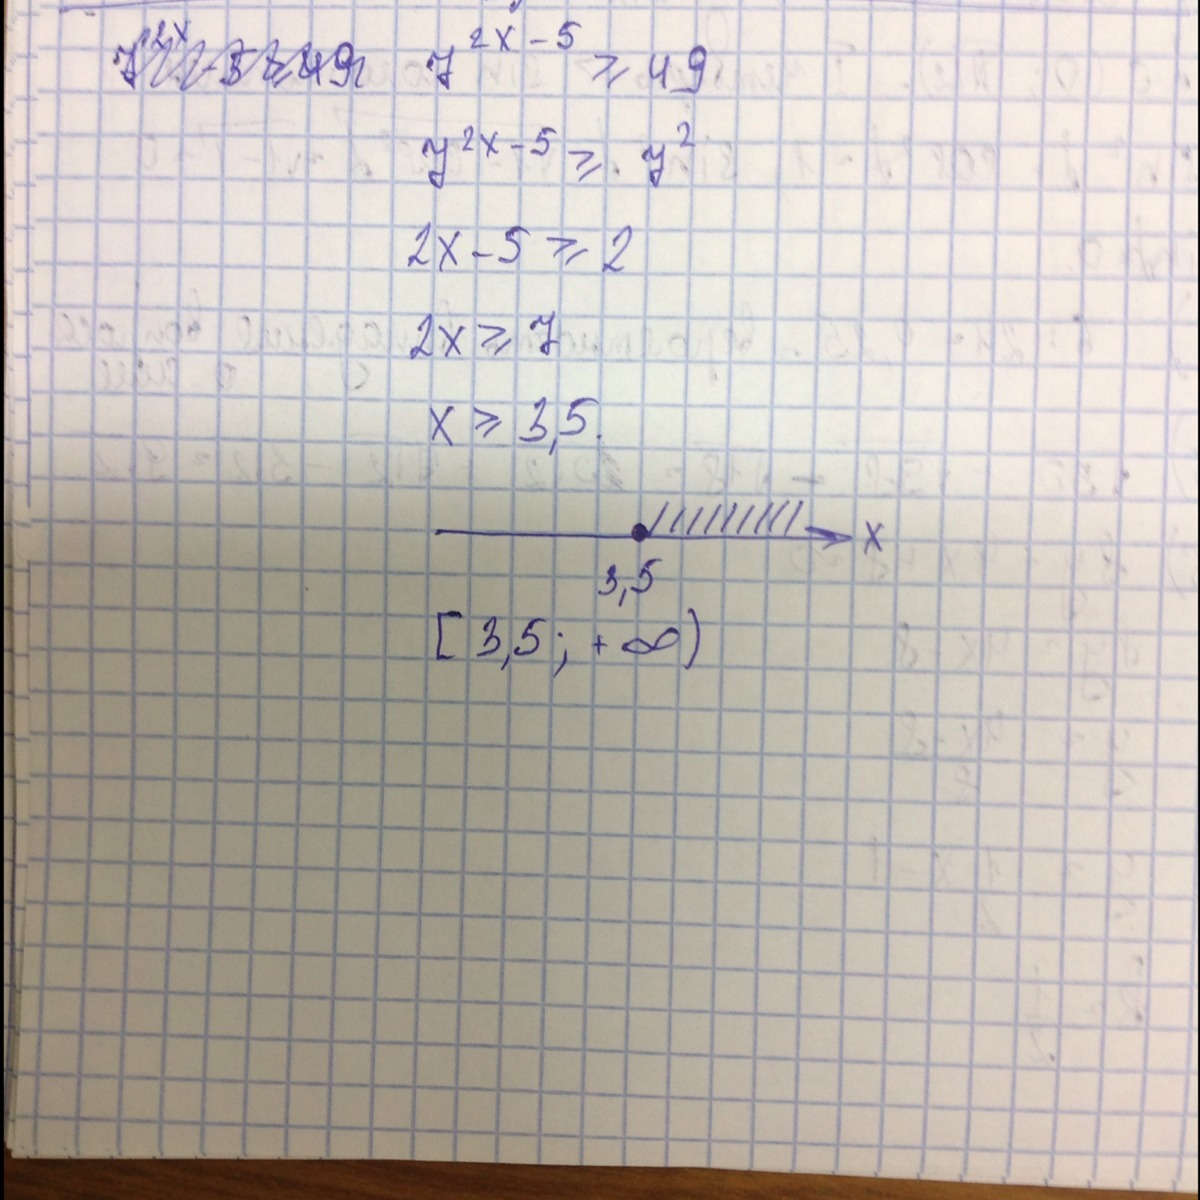 7^{2x-5} ≥ 49
7^{2x-5} ≥ 7^2
2x-5 ≥ 2
2x ≥ 7
x ≥ 3,5.
x
3,5
[3,5; +∞)